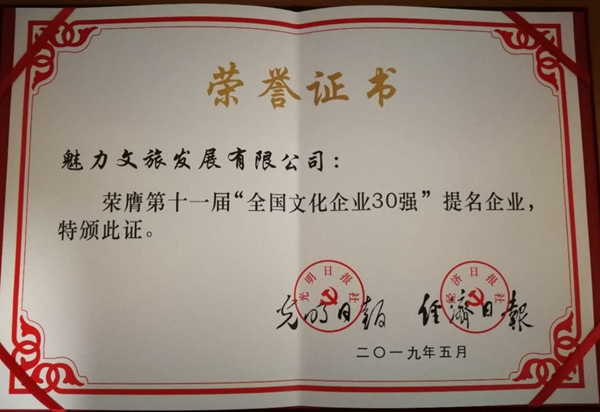 荣誉证书
魅力文旅发展有限公司：
荣膺第十一届“全国文化企业30强”提名企业，
特颁此证。
光明日报社 经济日报社
光明日报 经濟日報
二〇一九年五月